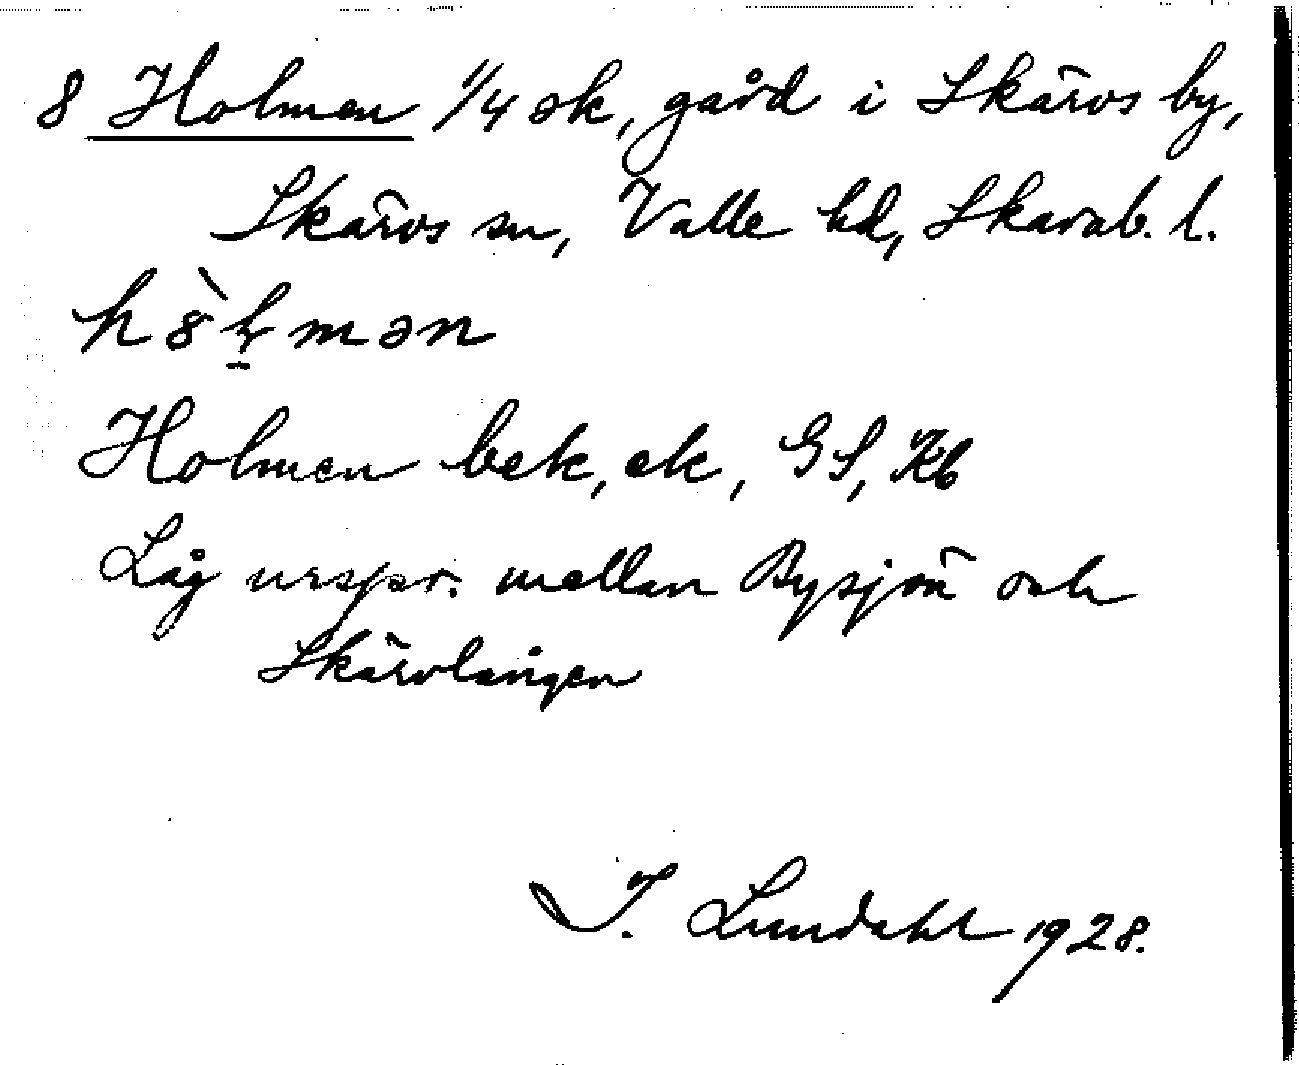 8 Holmen 1/4 sk, gård i Skärvs by,
Skärvs sn, Valle hd, Skarab. l.
Holmen bek, ek, GS, Kb
Låg urspr. mellan Bysjön och
Skärvlången
I. Lundahl 1928.